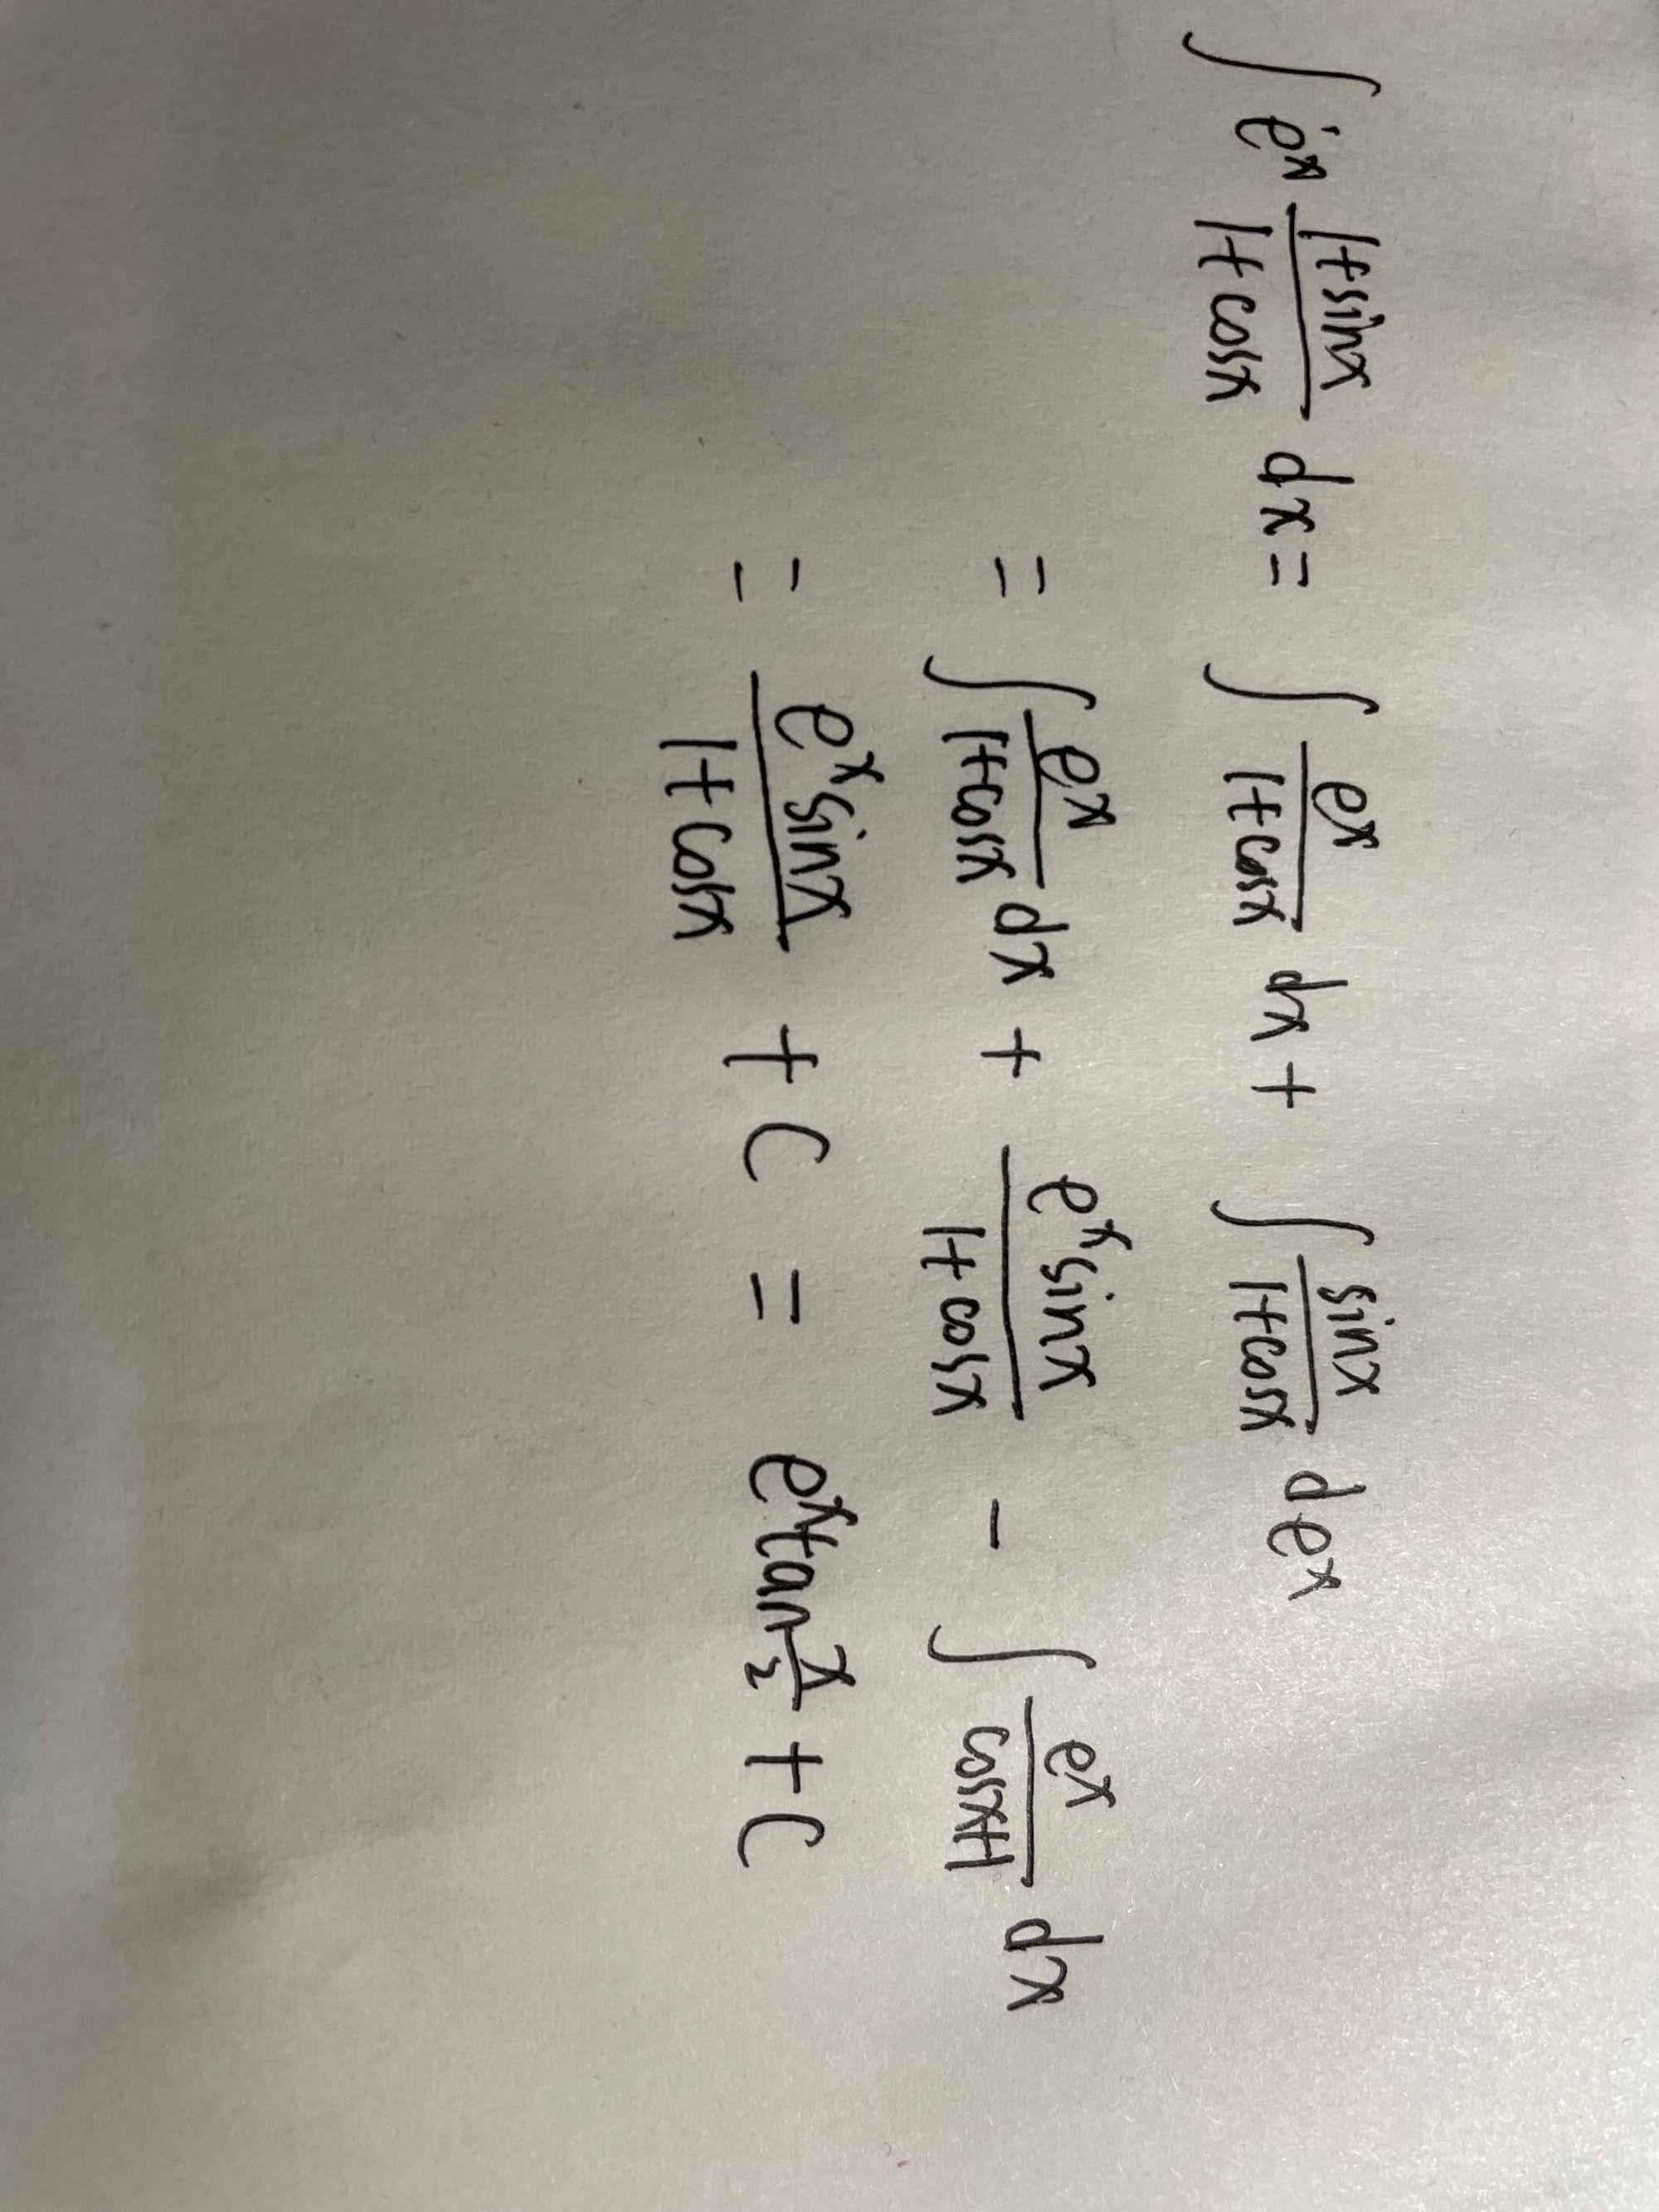 ∫ e^x (1+sinx)/(1+cosx) dx = ∫ e^x/(1+cosx) dx + ∫ sinx/(1+cosx) de^x
= ∫ e^x/(1+cosx) dx + e^x sinx/(1+cosx) - ∫ e^x/(cosx+1) dx
= e^x sinx/(1+cosx) + C = e^x tan x/2 + C